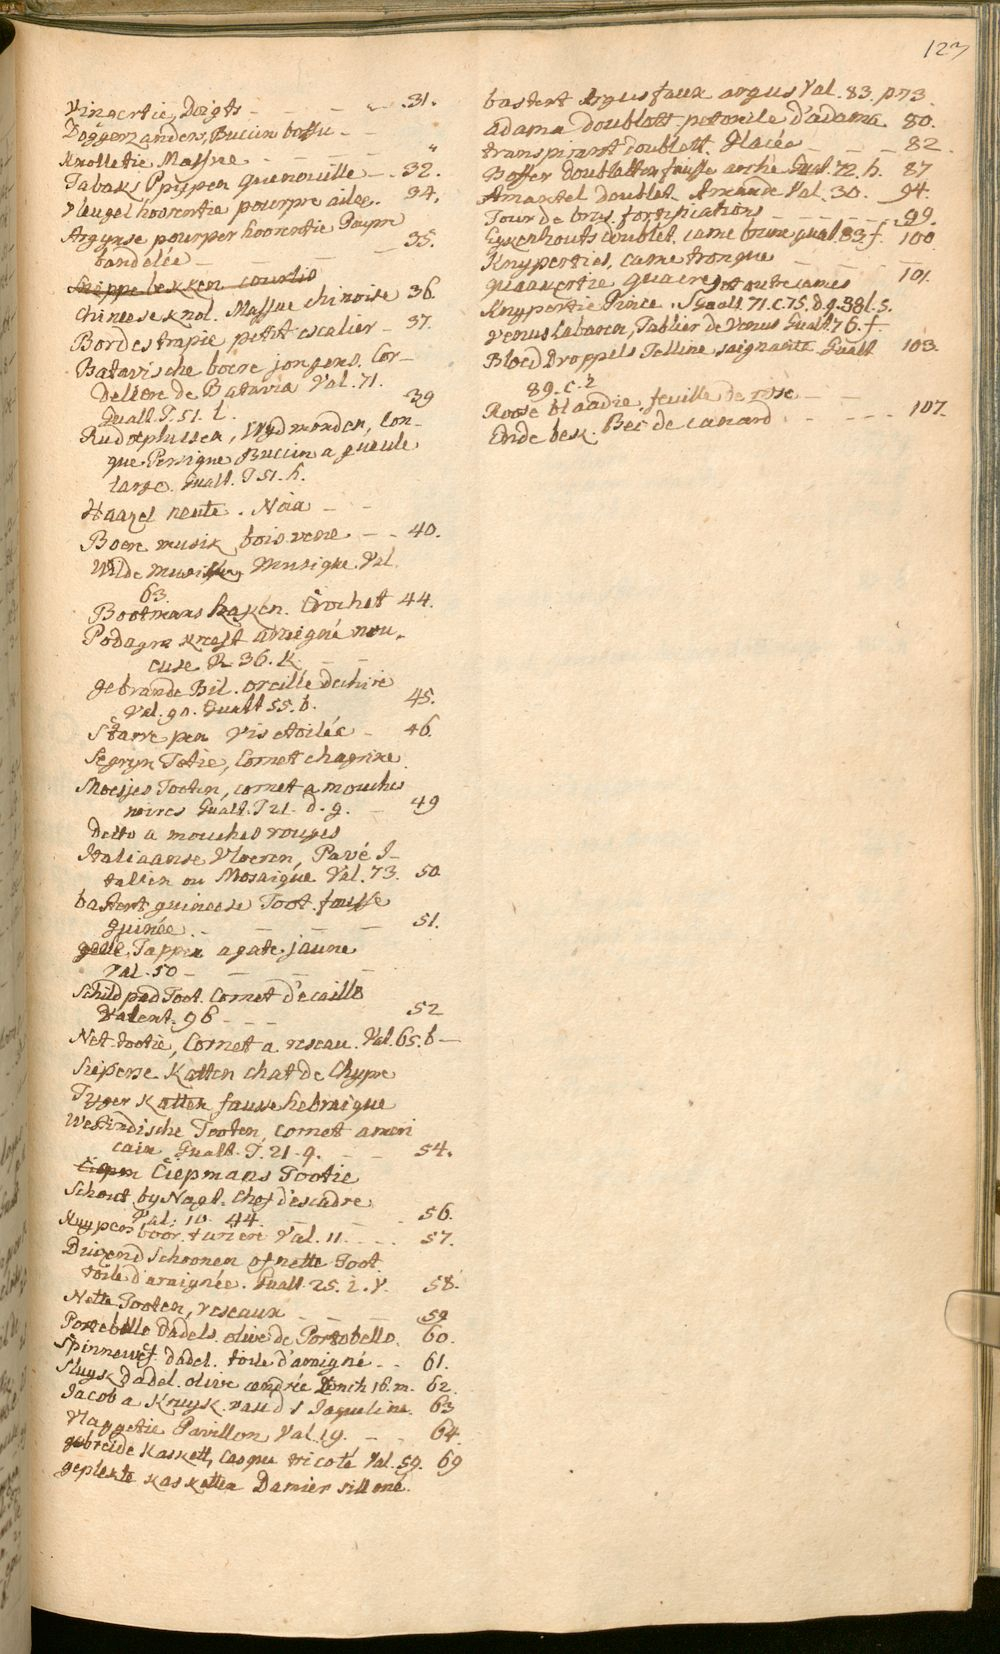 123
Vingertie, Doigts - - - 31.
Doggerzanders, Buccin bossu -
Knolletie Massue - - - "
Tabaks Pijpen Quenouille - - 32.
Vleugelhoorentie pourpre ailée. 34.
Argynse pourper hoorentie Pourpre
bandelée - - - 35.
Snippe bekken courlis
Chineese knol. Massue chinoise 36
Bordestrapie petit escalier - 37.
Batavische boere jongens. Cor-
deliere de Batavia Val. 71.
Gualt. T. 51. L. 39
Rudolphussen, Wydmonden, Con-
que Persique Buccin a gueule
large. Gualt. T 51. h.
Haazel neute. Noix - -
Boere musik, bois vene - - 40.
Wilde musiken, Musique. Val.
63.
Bootmans haken. Crochet 44.
Podagra kreeft araigné nou-
euse R. 36. K. - -
gebrande Bil. oreille dechiré
Val. 90. Gualt 55. b. 45.
Starre pen Vis etoilée - 46.
Segryn Totie, Cornet chagriné
Moesjes Tooten, cornet a mouches
noires Gualt. T 21. d. g. - 49
Detto a mouches rouges
Italiaanse Vloeren, Pavé I-
talien ou Mosaique Val. 73. 50
bastert guineese Toot. fausse
guinée. - - - 51.
geele Tappen agate jaune
Val. 50 - - -
Schildpad Toot. Cornet d'ecaille
Valent. 96 - - - 52
Net tootie, Cornet a reseau. Val. 65. b -
Sieperse Katten chat de Chypre
Tyger Katten fausse hebraique
Westindische Tooten, cornet ameri
cain Gualt. T. 21. q. - - 54.
Ciepmans Tootie
Schout by Nagt. Chef d'escadre
Val. 10. 44. - - - 56.
Kuypers boor. tariere Val. 11. - - 57.
Druyend Schoonen of nette Toot
toile d'araignée. Gualt. 25. 2. Y. 58.
Nette Tooten, reseaux - - - 59
Portebello Dadels. olive de Portobello. 60.
Spinneweb dadel. toile d'araigné - - 61.
Sluyk Dadel. olive cendrée Bonih 16. m. 62.
Jacob a Kruyk. vaud s Jaqueline. 63
Vlaggetie Pavillon Val. 19. - - 64.
gebreide Kaskett, Casque tricoté Val. 59. 69
geplekte kasketten Damier sillone.
bastert Argus faux argus Val. 83. p 73.
adams doublett petoncle d'adams 80.
transpirant doublett. Glacée - - - 82.
Boffer doubletten fausse arche Gualt. 72. h. 87
Amantel doublet. Amande Val. 30. 94.
Tour de bris. fortifications - - - - 99
Eykenhouts doublet. came brune Gualt. 83. f. 100.
Knyperties, came tronque - - -
quaakertie quacres et autre cames 101.
Knypertie Pince. Gualt. 71. c. 75. d. q. 38 l. s.
Venus Cabaren, Tablier de Venus Gualt. 76. f.
Bloed Droppels Telline saignante Gualt 103.
89. C. 2
Roose blaadie, feuille de rose - -
Ende bek. Bec de canard - - - - 107.